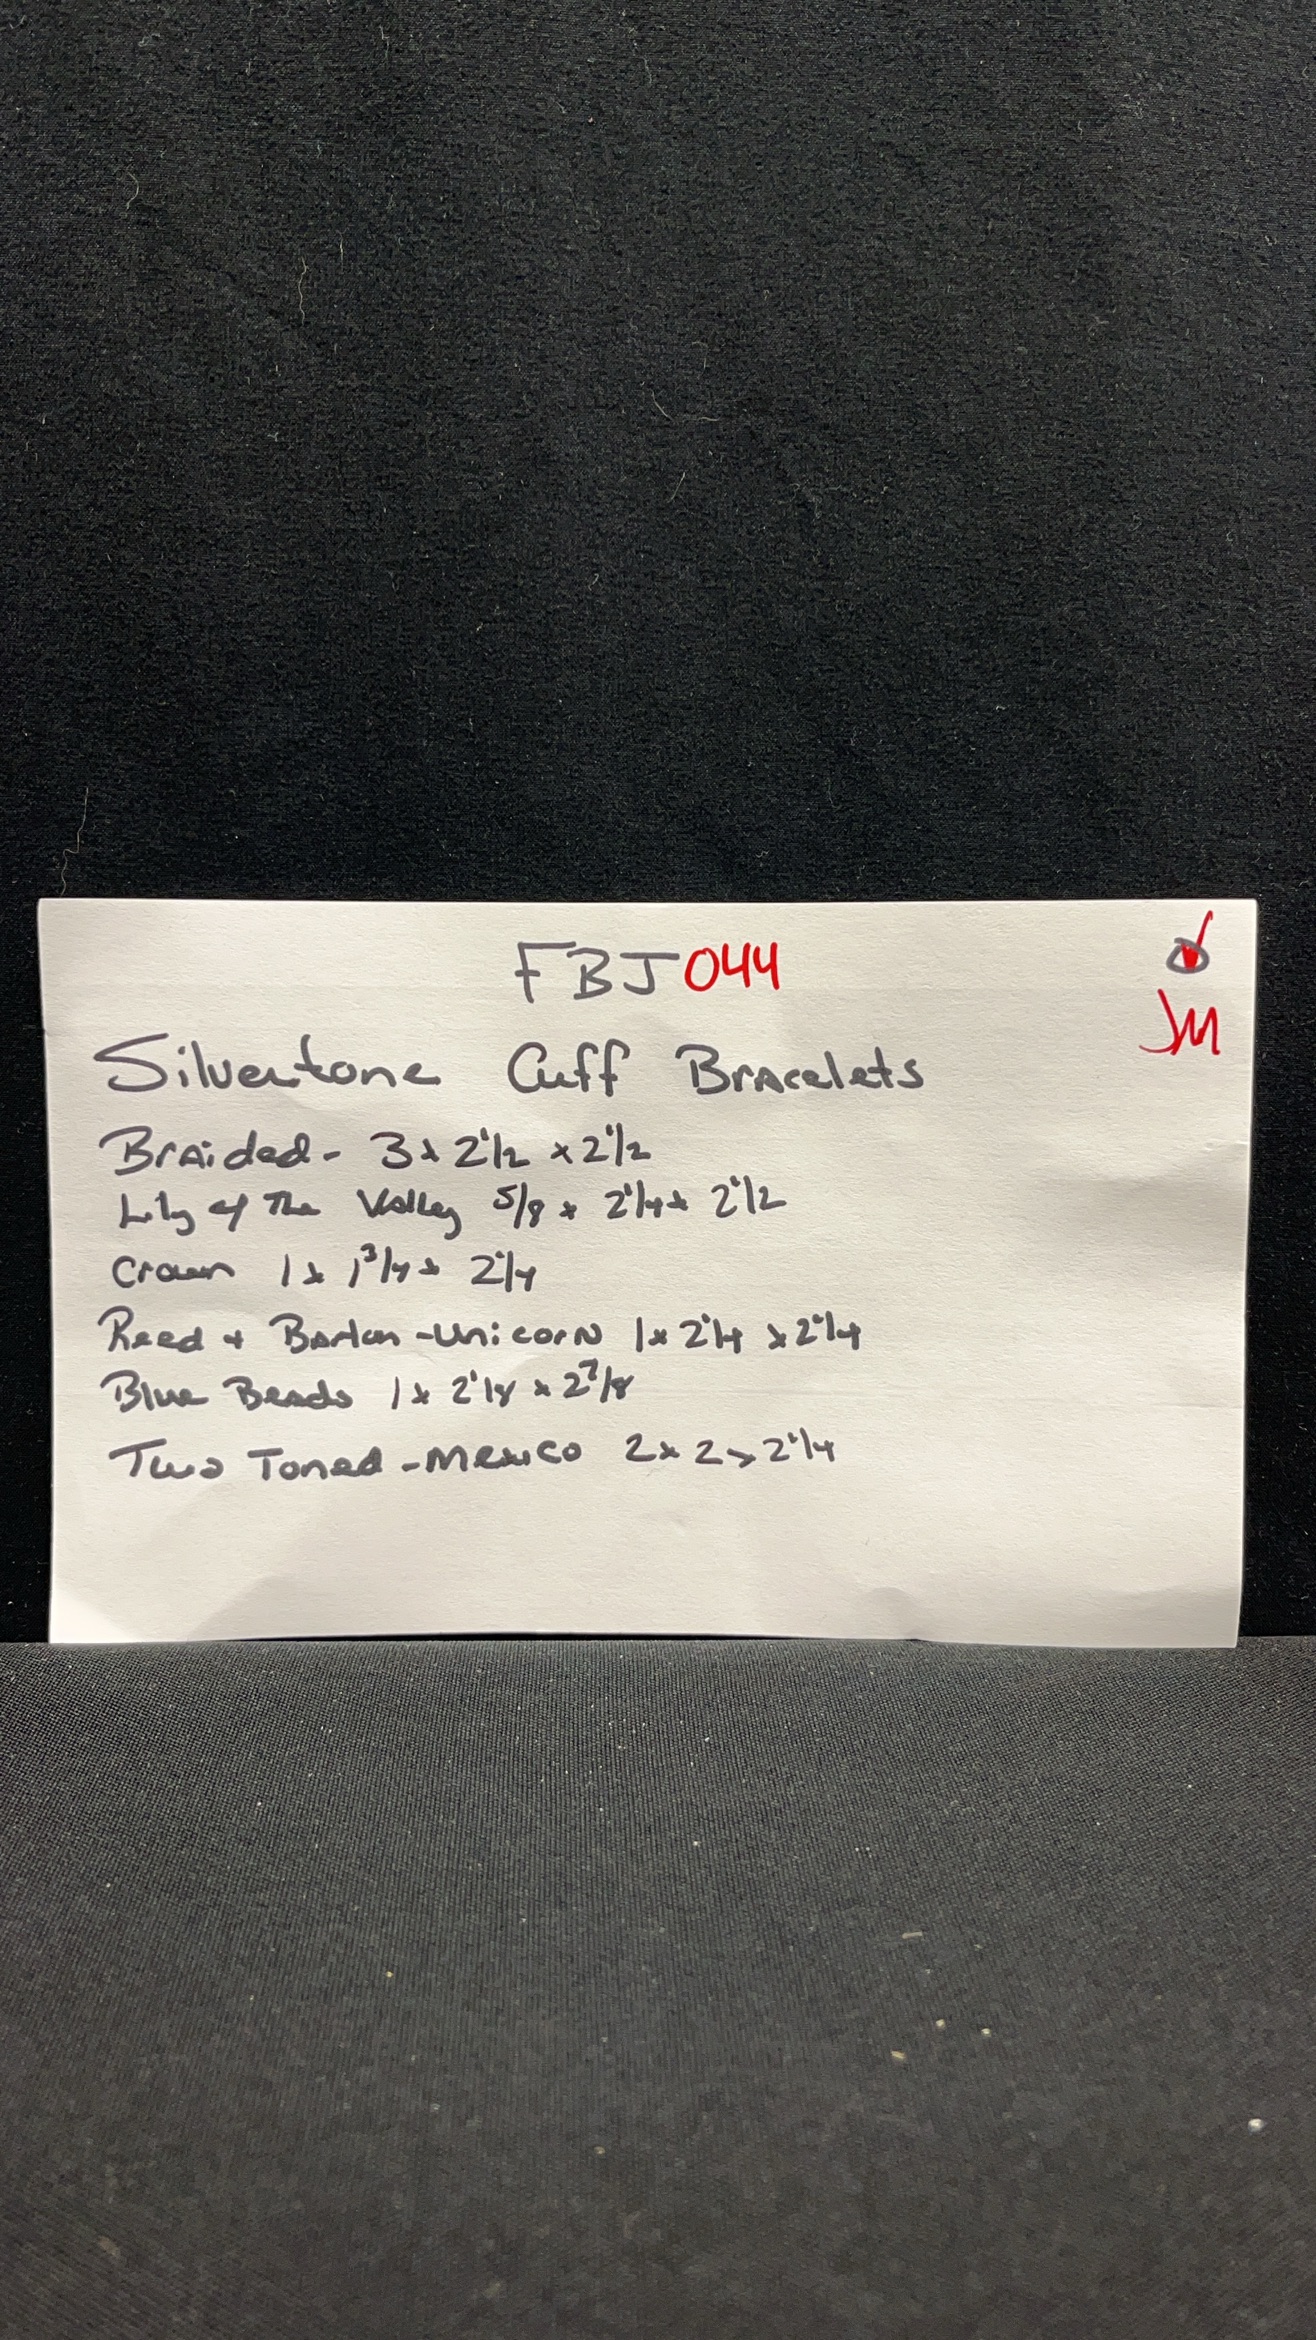 FBJ044
JM
Silvertone Cuff Bracelets
Braided - 3 x 2 1/2 x 2 1/2
Lily of The Valley 5/8 x 2 1/4 x 2 1/2
Crown 1 x 1 3/4 x 2 1/4
Reed + Barton - Unicorn 1 x 2 1/4 x 2 1/4
Blue Beads 1 x 2 1/8 x 2 7/8
Two Toned - Mexico 2 x 2 x 2 1/4